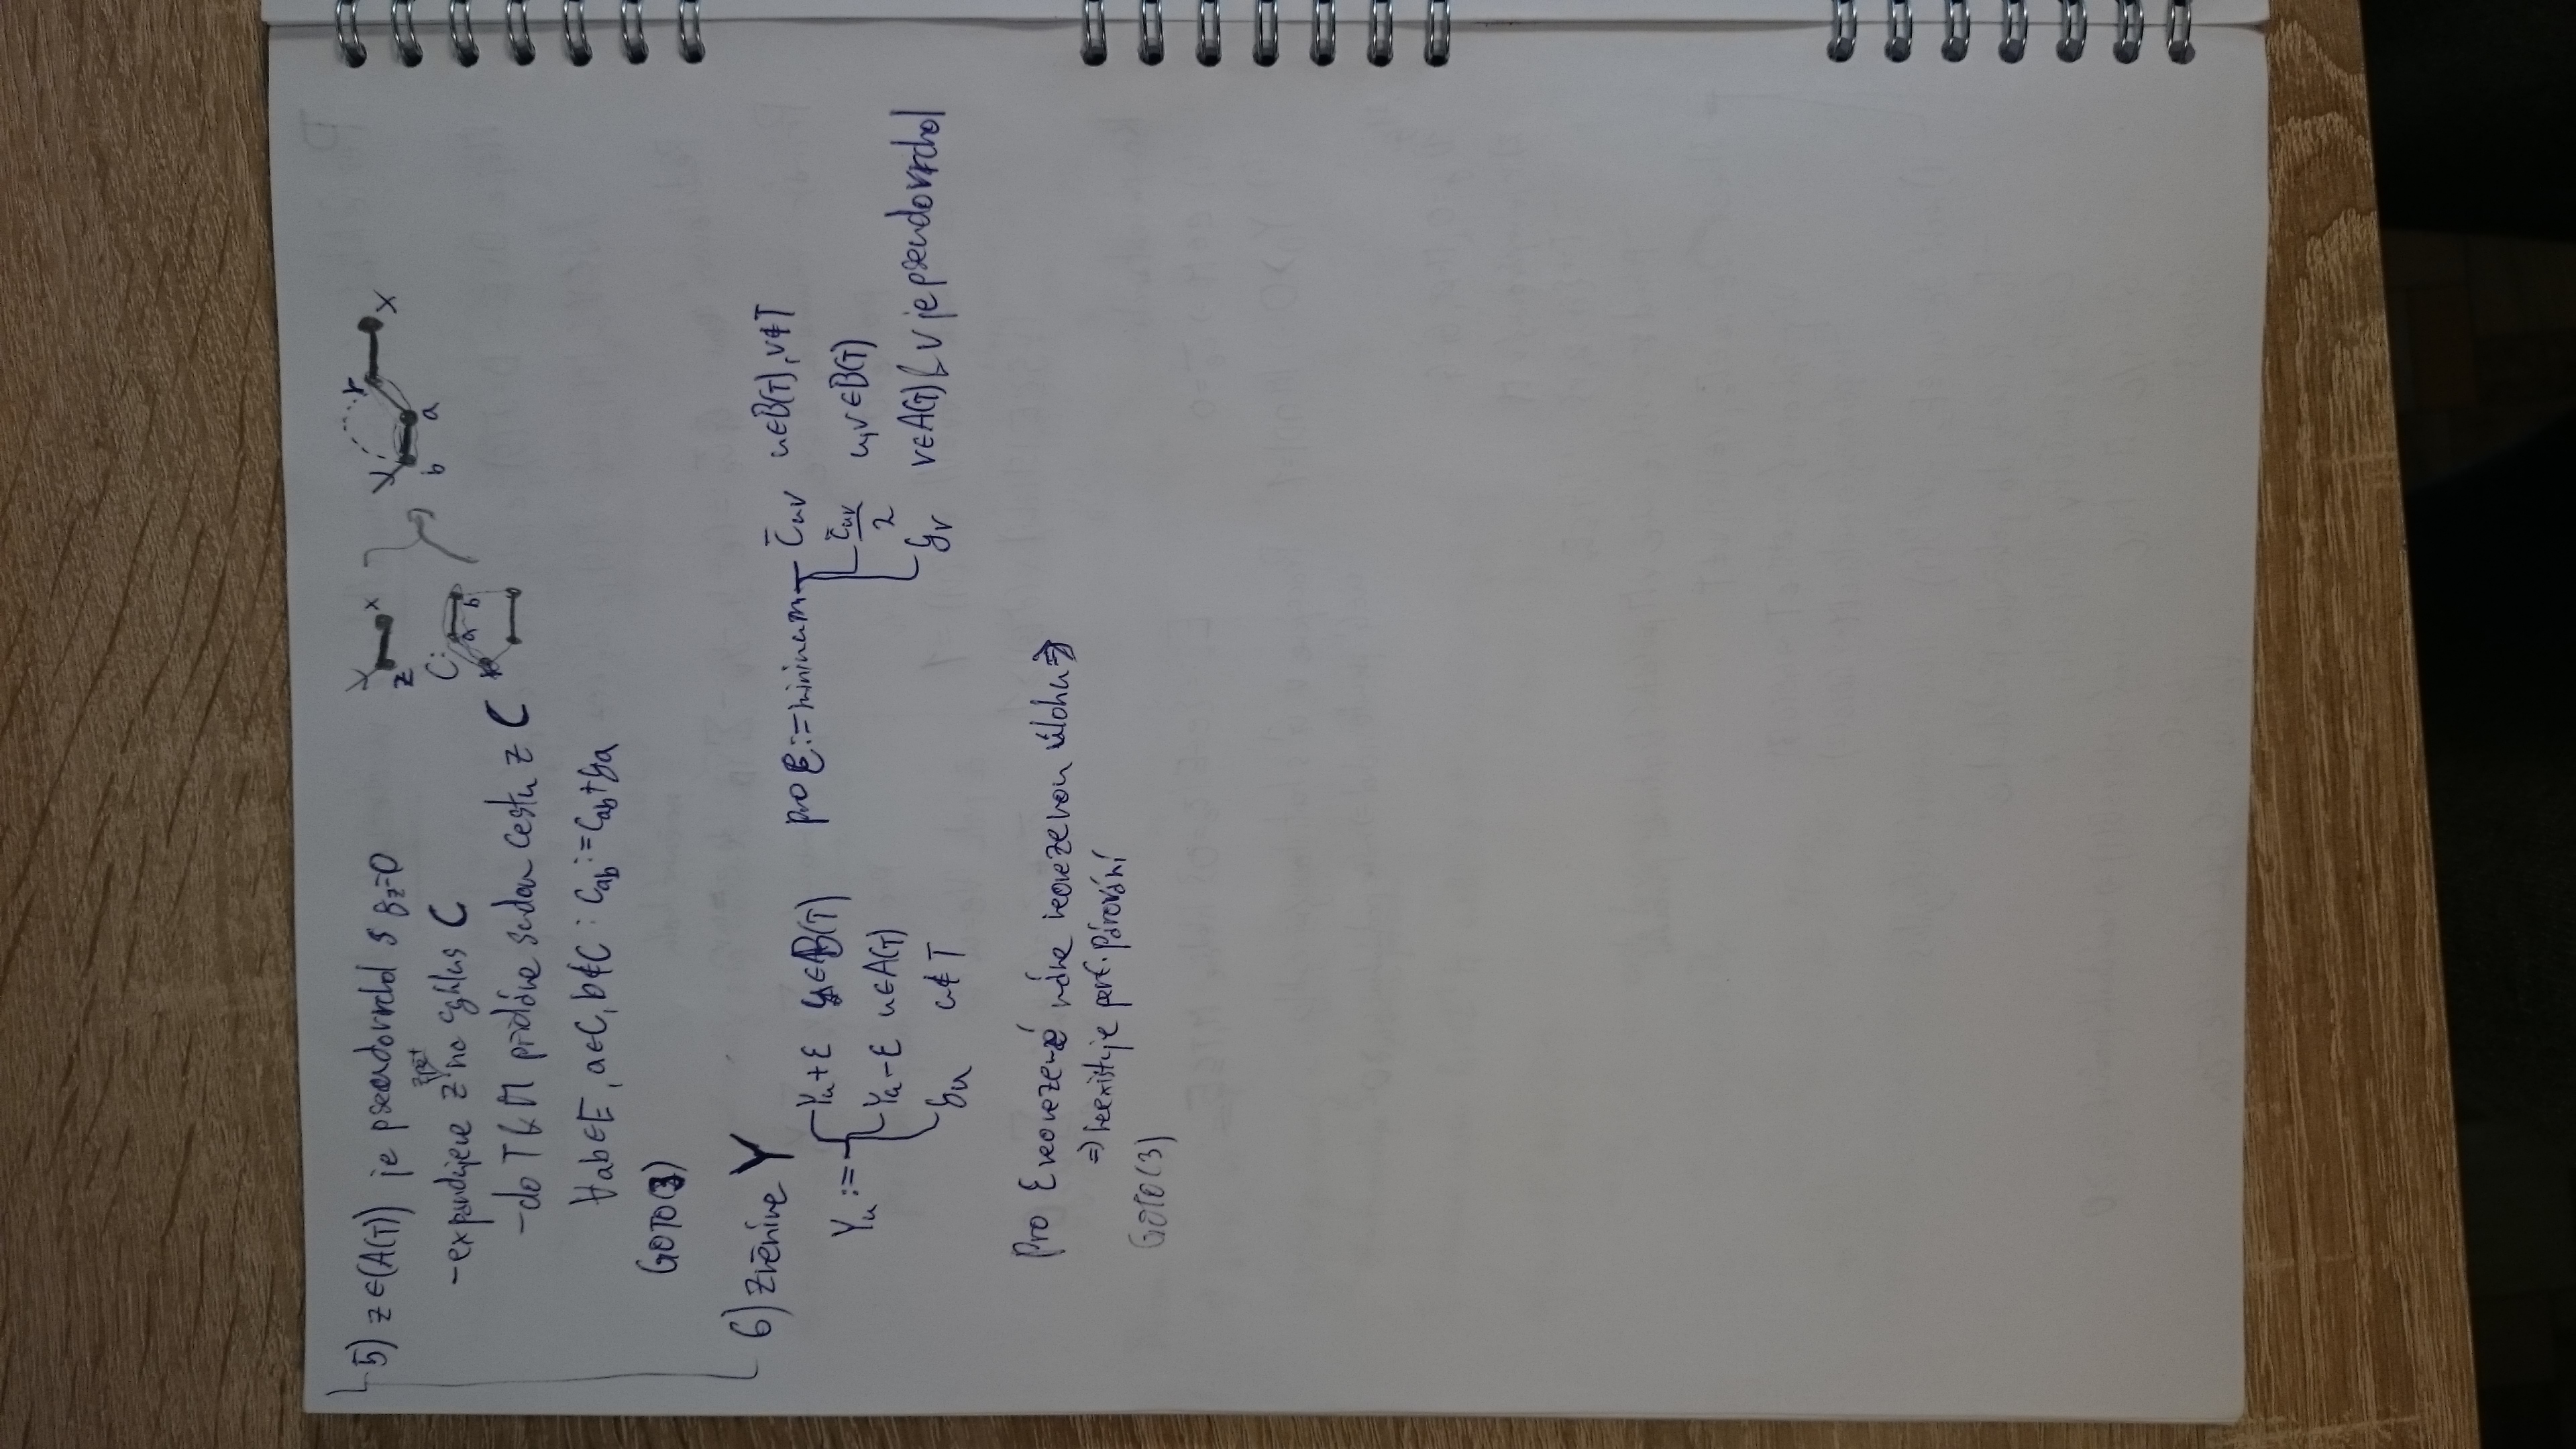 5) z∈(A(T)) je pseudovrchol s y_z=0
- expandujeme z zpět na cyklus C
- do T & M přidáme sudou cestu z C
∀ab∈E, a∈C, b∉C : c_ab := c_ab + y_a
GOTO(3)
z x
C:
a b
r x
b a
6) Změníme Y
Y_u := { Y_u + ε u∈B(T)
Y_u − ε u∈A(T)
y_u u∉T
pro ε := minimum { c̄_uv u∈B(T), v∉T
c̄_uv/2 u,v∈B(T)
y_v v∈A(T) & v je pseudovrchol
Pro ε neomezené máme neomezenou úlohu ⇒
⇒ neexistuje perf. párování
GOTO(3)